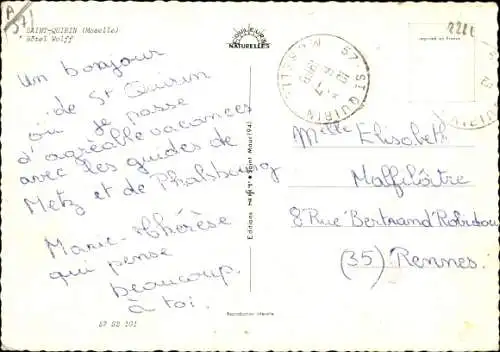 SAINT-QUIRIN (Moselle)
Hôtel Wolff
NATURELLES
Un bonjour
de St Quirin
où je passe
d'agréable vacances
avec les guides de
Metz et de Phalsbourg
Marie-Thérèse
qui pense
beaucoup
à toi.
57 SB 101
Editions
Saint Maur (94)
Reproduction interdite
57-ST QUIRIN
MOSELLE
Melle Elisabeth
Malfilâitre
8 Rue Bertrand Robidou
(35) Rennes.